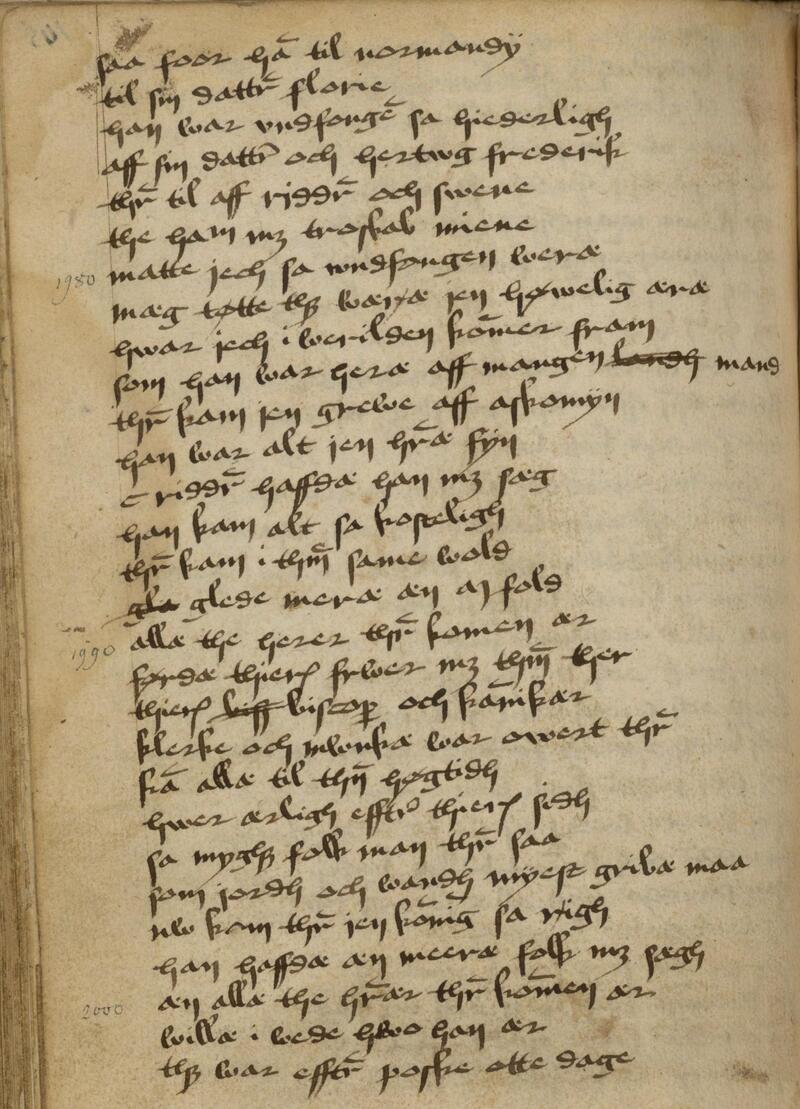 saa foor hā til normandÿ
til sin dattr̄ florie
han war vndfongē sa hiederligh
aff sin dattr̄ och hertwg frederik
thr̄ til aff riddr̄ och swene
the ham mꝫ troskab miene
1980 matte jech sa wndfongen weræ
mæg tøtte thꝫ wæræ jen høwelig æræ
hwar jech i werilden kōmer fram
som han war heræ aff mangen landh mand
thr̄ kam jen grewe aff askomÿn
han war alt jen hr̄æ fÿn
c riddr̄ haffdæ han mꝫ sæg
han kam alt sa kosteligh
thr̄ kam i thm̄ same wold
gla glede meræ æn aɉ fold
1990 allæ the herer thr̄ komen ær
førdæ thierꝭ frwer mꝫ thm̄ ther
thierꝭ biff biscopꝑ och kānikær
klerke och mwnkæ war owert thr̄
kā allæ til thn̄ høgtidh
hwer ærligh efftr̄ thierꝭ sidh
sa mÿghꝫ folk man thr̄ saa
som jordh och wandh mÿest gribæ maa
nw kom thr̄ jen kōnig sa righ
han haffdæ æn meeræ folk mꝫ sægh
2000 æn allæ the hr̄ær thr̄ kom̄en ær
willæ i wede hwo han ær
thꝫ war efftr̄ poske otte dage